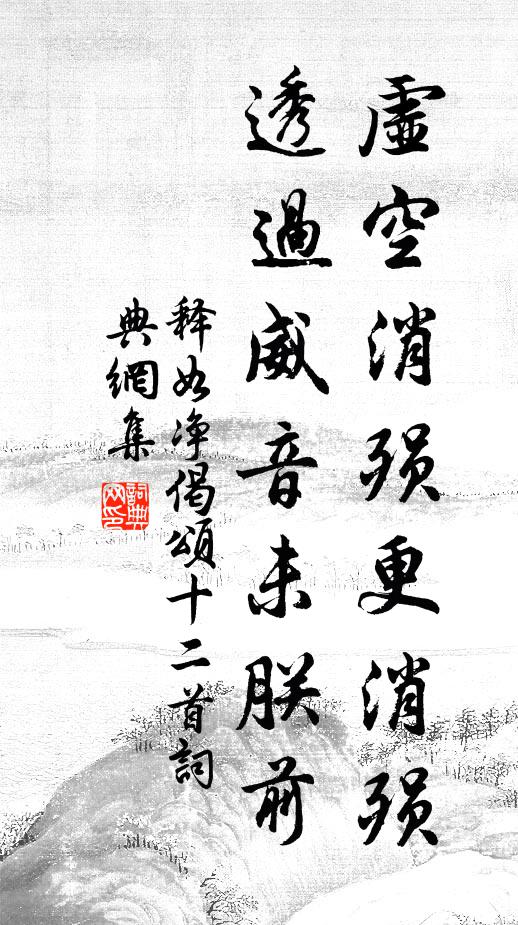 虛空消殞更消殞
透過威音未朕前
释如净偈頌十二首詞
典網集
詞典網印